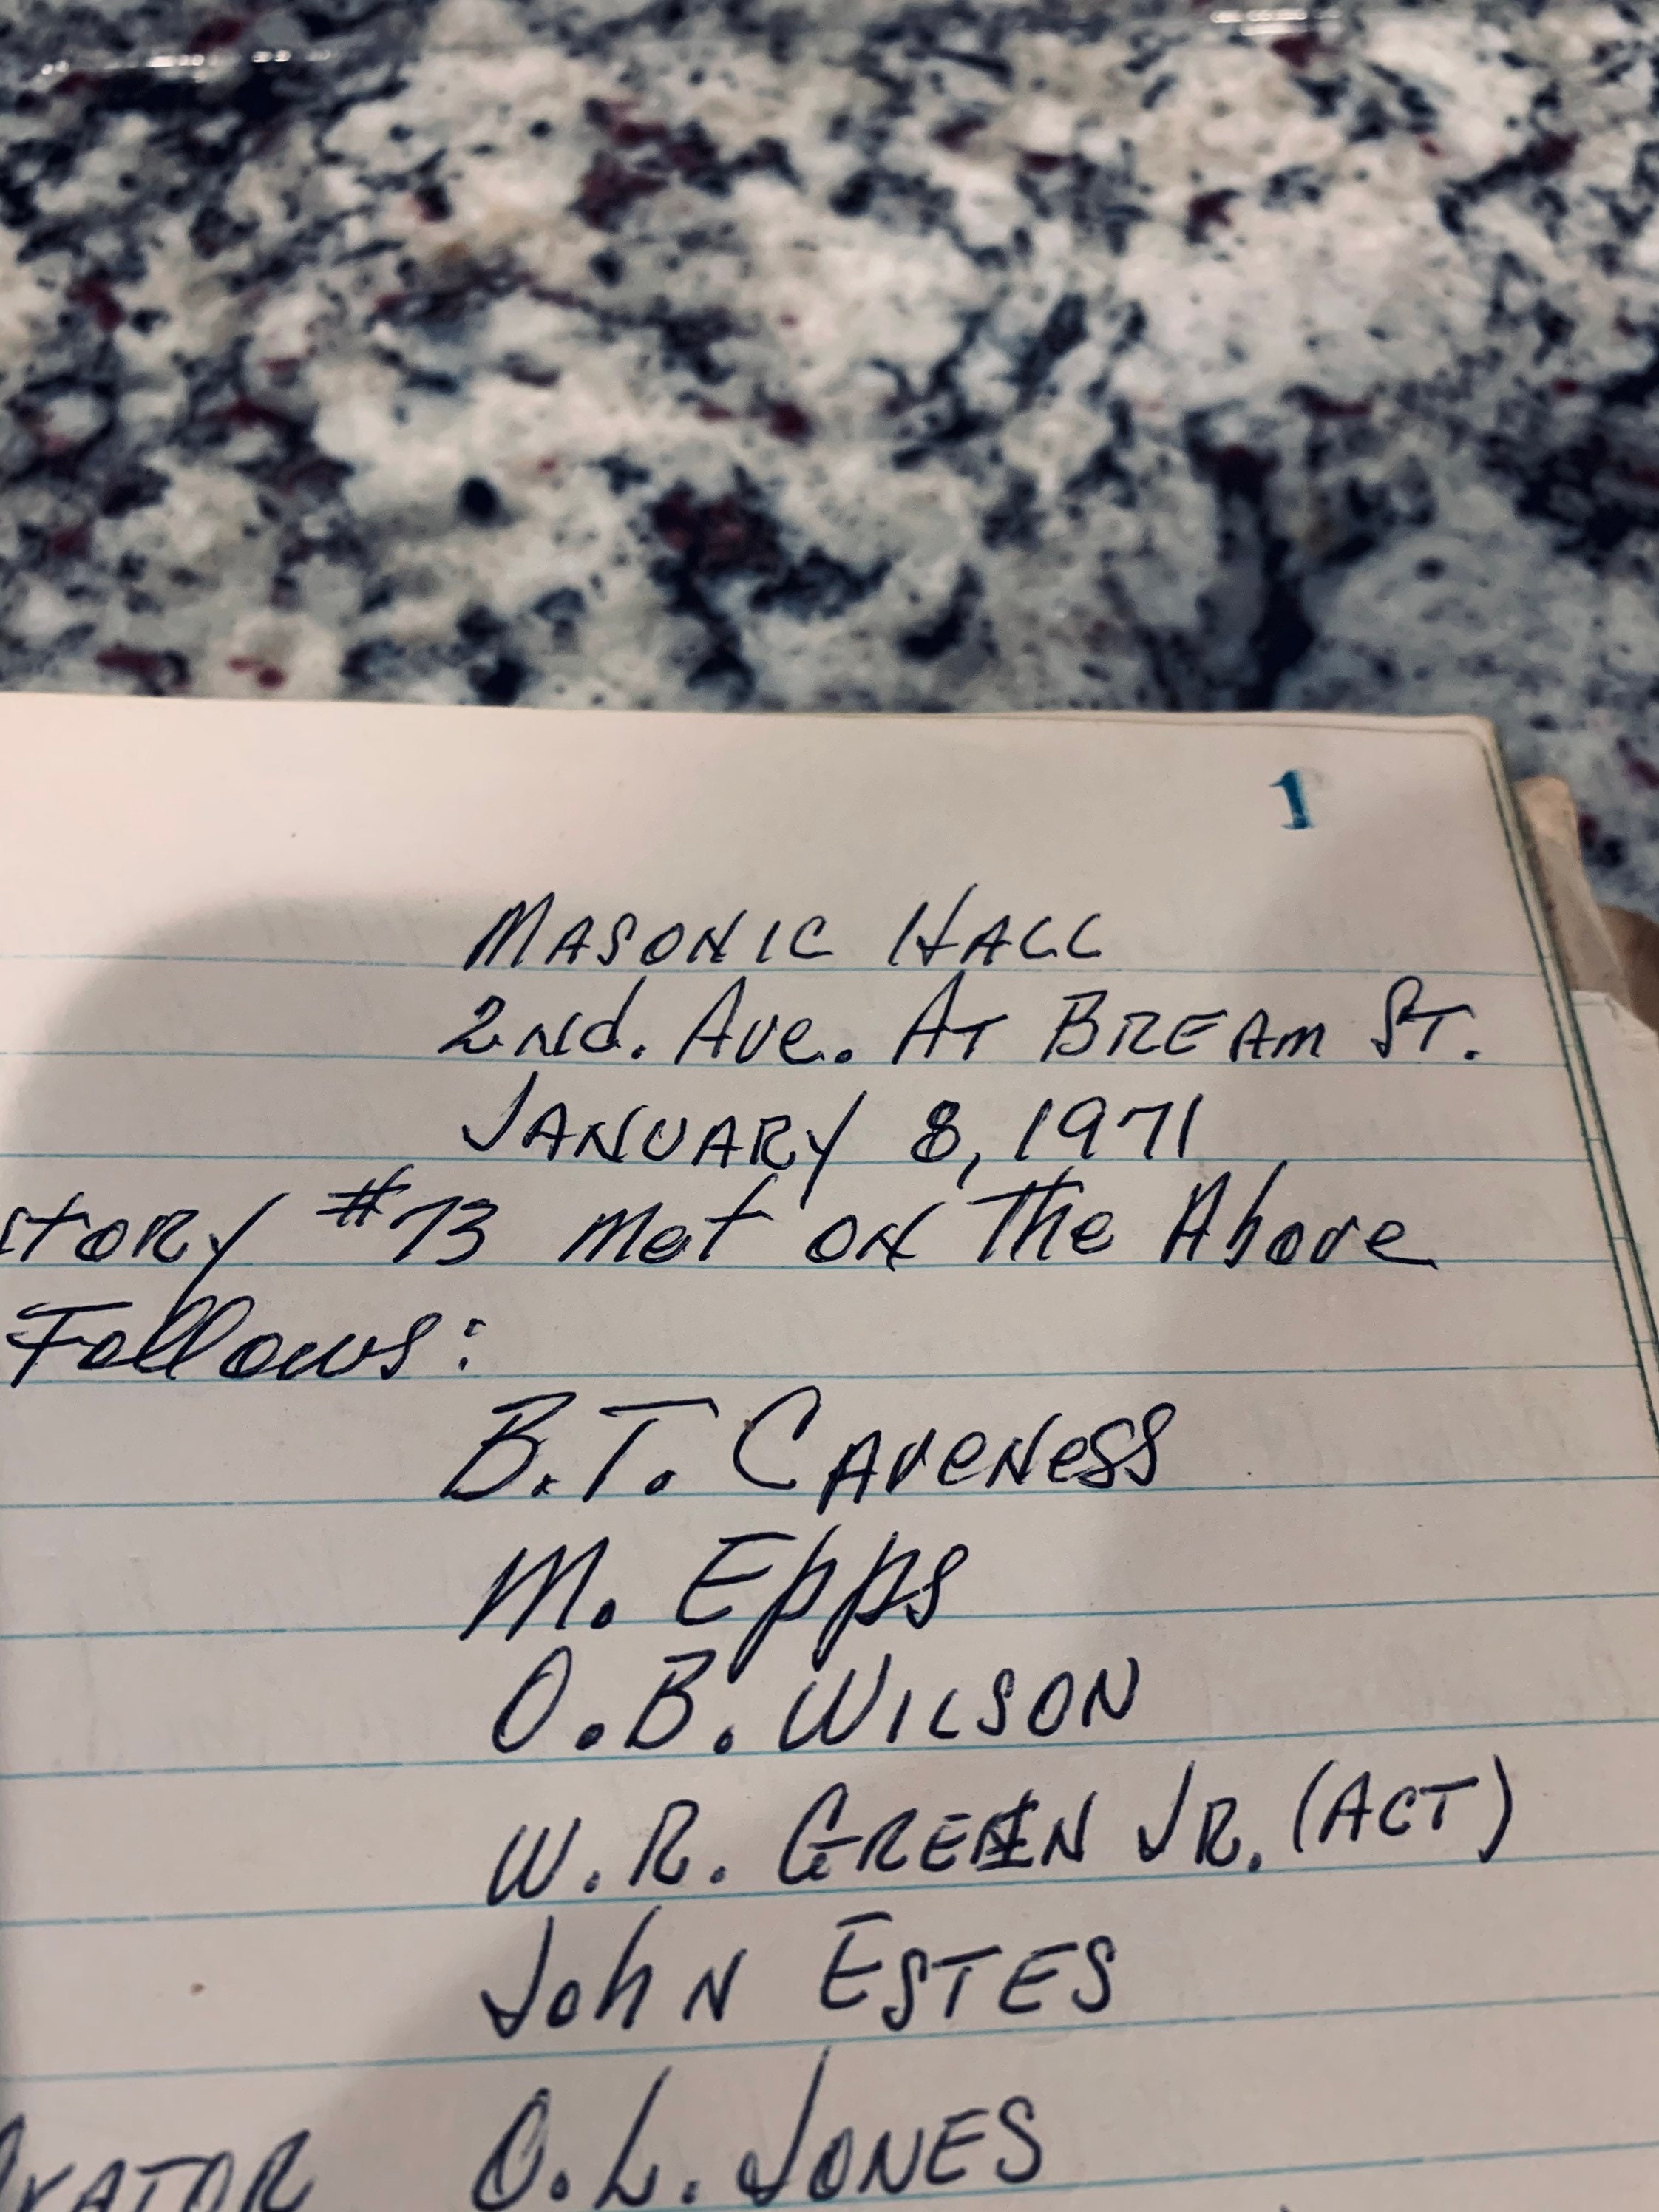 1
MASONIC HALL
2Nd. Ave. AT BREAM ST.
JANUARY 8, 1971
story #73 Met oN The Above
Follows:
B.T. CAveNess
M. Epps
O.B. WILSON
W.R. GREEN JR. (ACT)
JohN ESTES
O.L. JONES